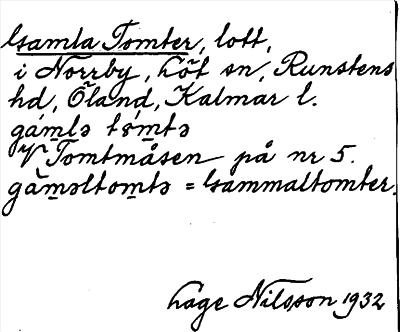 Gamla Tomter, lott,
i Norrby, Löt sn, Runstens
hd, Öland, Kalmar l.
gámlə tómtə
V Tomtmåsen på nr 5.
gàməltomtə = Gammaltomter.
Lage Nilsson 1932